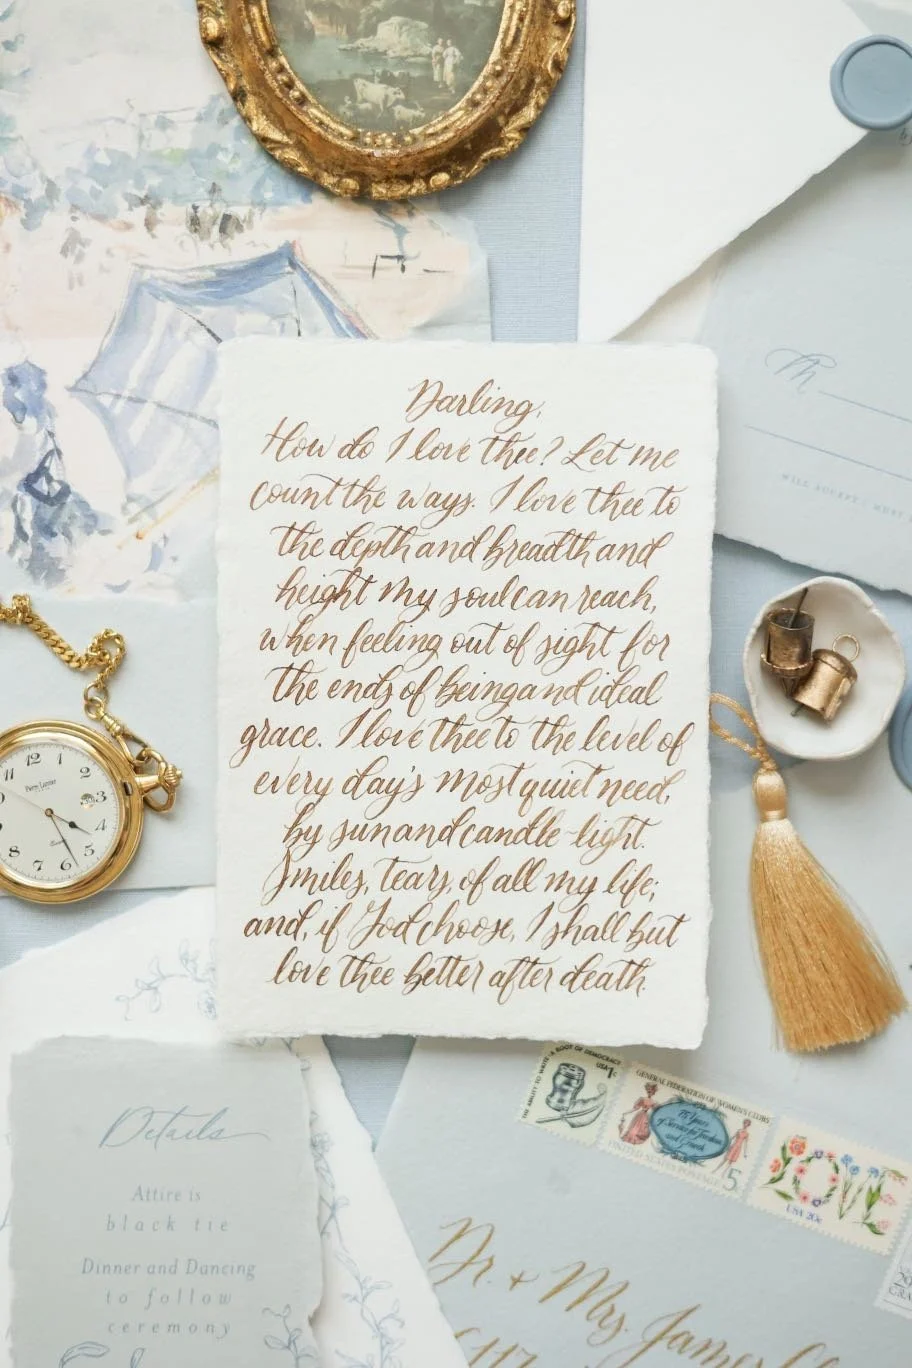 Darling,
How do I love thee? Let me
count the ways. I love thee to
the depth and breadth and
height my soul can reach,
when feeling out of sight for
the ends of being and ideal
grace. I love thee to the level of
every day's most quiet need,
by sun and candle-light.
Smiles, tears, of all my life;
and, if God choose, I shall but
love thee better after death.
M
WILL ACCEPT
11 12 1 2 3 4 5 7 8 9
Pierre Laurent
Details
Attire is
black tie
Dinner and Dancing
to follow
ceremony
THE ABILITY TO WRITE · A ROOT OF DEMOCRACY
USA 1c
GENERAL FEDERATION OF WOMEN'S CLUBS
75 Years
of Service for Freedom
and Growth
UNITED STATES POSTAGE 5
LOVE
USA 20c
20
Dr. + Mrs. James
117